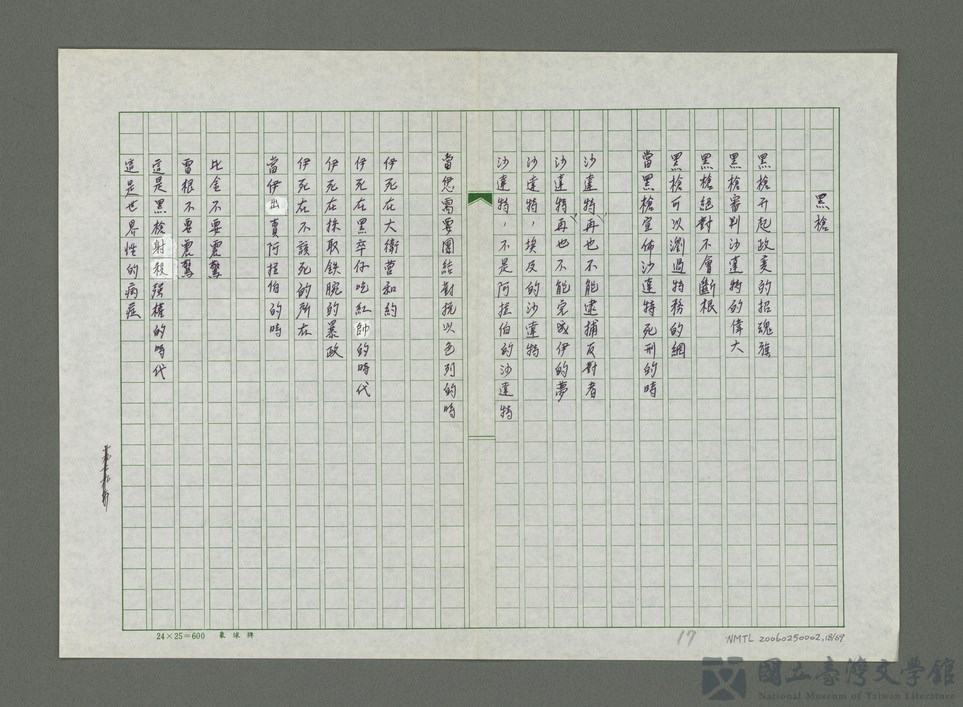 黑槍
黑槍升起政変的招魂旗
黑槍審判沙達特的偉大
黑槍絕對不會斷根
黑槍可以瀏過特務的網
當黑槍宣佈沙達特死刑的時
沙達特再也不能逮捕反對者
沙達特再也不能完成伊的夢
沙達特，埃及的沙達特
沙達特，不是阿拉伯的沙達特
當您需要團結對抗以色列的時
伊死在大衛營和約
伊死在黑卒仔吃紅帥的時代
伊死在採取鉄腕的暴政
伊死在不該死的所在
當伊出賣阿拉伯的時
比金不要震驚
雷根不要震驚
這是黑槍射殺強權的時代
這是世界性的病症
24×25=600
17
NMTL 20060250002,18/69
國立臺灣文學館
National Museum of Taiwan Literature